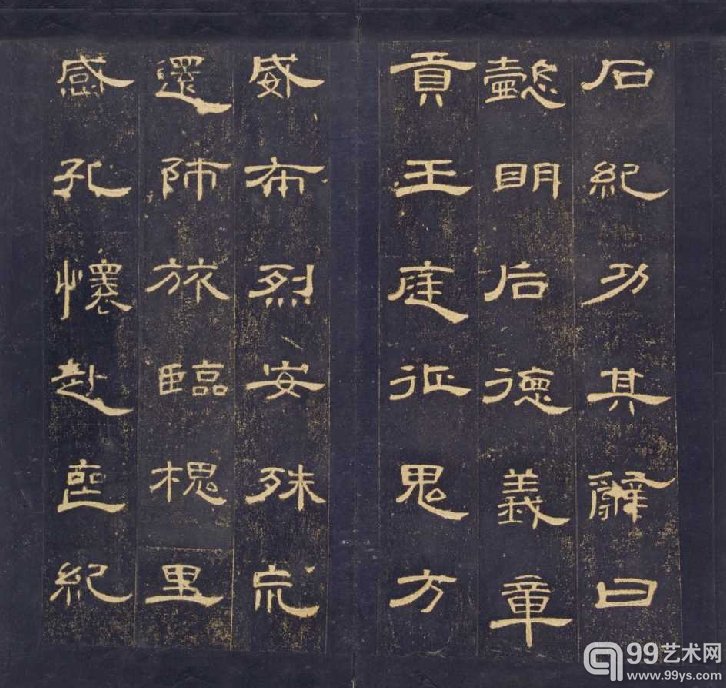 石紀功其辭曰
懿明后德義章
貢王庭征鬼方
威布烈安殊巟
還師旅臨槐里
感孔懷赴喪紀
99艺术网
www.99ys.com